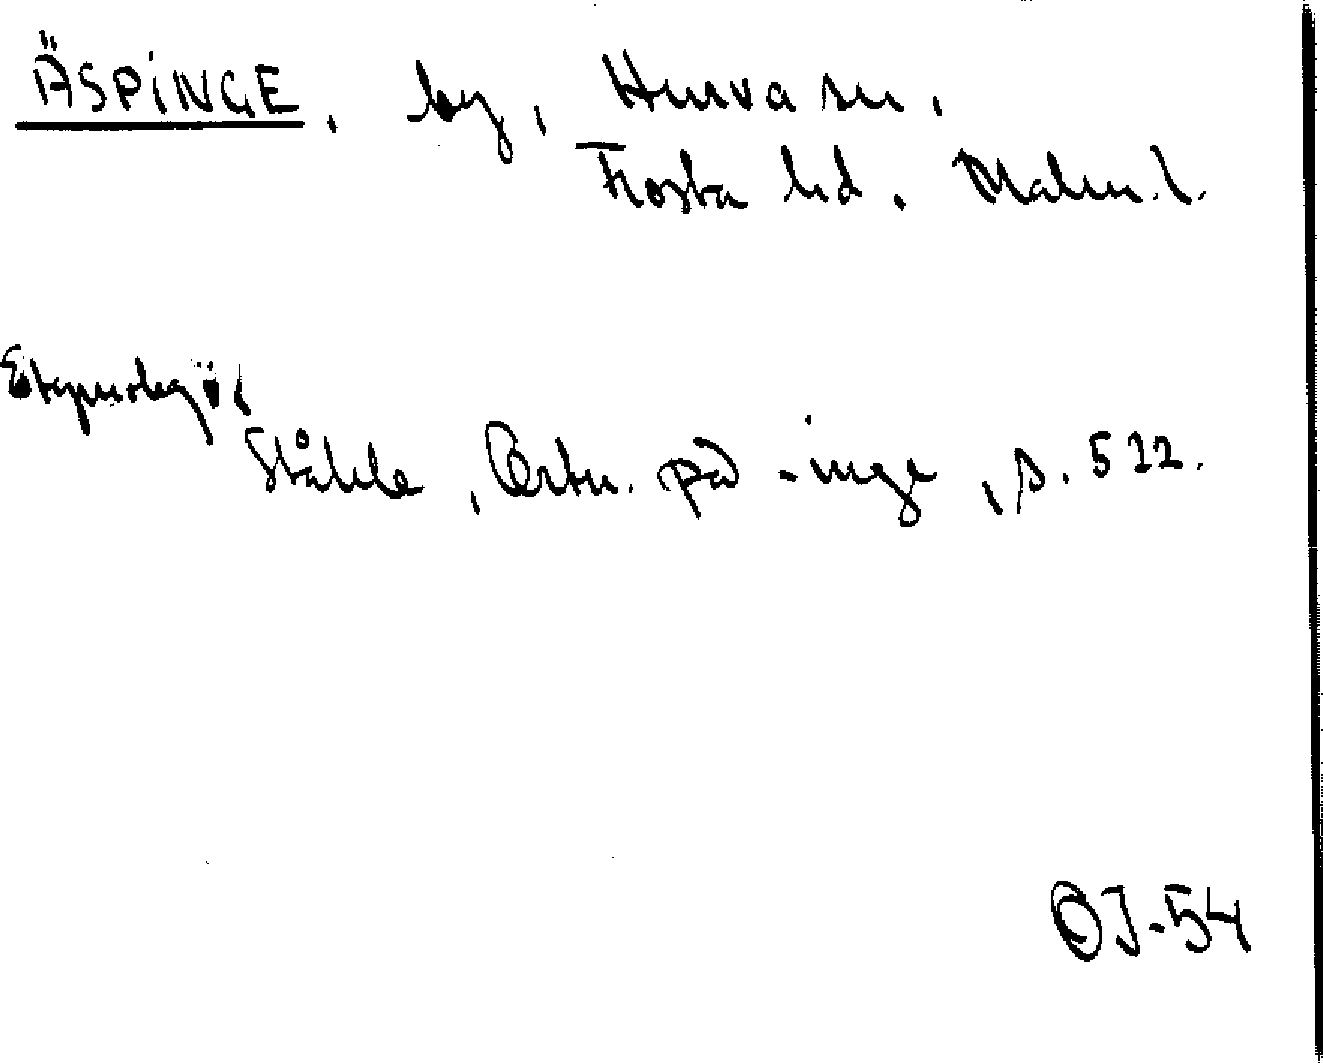 ÄSPINGE, by, Hurva sn,
Frosta hd, Malm. l.
Etymologi:
Ståhle, Ortn. på -inge, s. 522.
OJ-54